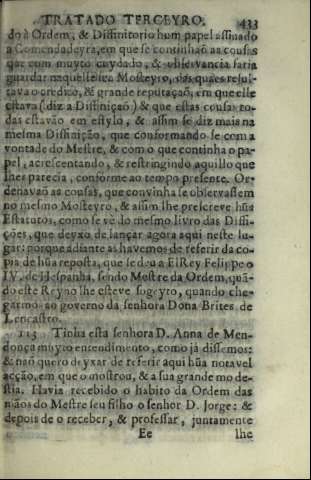 TRATADO TERCEYRO. 433
do à Ordem, & Diffinitorio hum papel assinado
a Comendadeyra, em que se continhaõ as cousas
que com muyto cuydado, & observancia faria
guardar naquelle seu Mosteyro, das quaes resul-
tava o credito, & grande reputaçaõ, em que elle
estava (diz a Diffiniçaõ) & que estas cousas to-
das estavão em estylo, & assim se diz mais na
mesma Diffinição, que conformando-se com a
vontade do Mestre, & com o que continha o pa-
pel, acrescentando, & restringindo aquillo que
lhes parecia, conforme ao tempo presente. Or-
denavaõ as cousas, que convinha se observassem
no mesmo Mosteyro, & assim lhe prescreve hũs
Estatutos, como se vè do mesmo livro das Diffi-
ções, que deyxo de lançar agora aqui neste lu-
gar: porque adiante as havemos de referir da co-
pia de hũa reposta, que se deu a ElRey Felippe o
IV. de Hespanha, sendo Mestre da Ordem, quã-
do este Reyno lhe esteve sogeyto, quando che-
garmos ao governo da senhora Dona Brites de
Lencastro.
113 Tinha esta senhora D. Anna de Men-
donça muyto entendimento, como já dissemos:
& naõ quero deyxar de referir aqui hũa notavel
acção, em que o mostrou, & a sua grande mode-
stia. Havia recebido o habito da Ordem das
mãos do Mestre seu filho o senhor D. Jorge: &
depois de o receber, & professar, juntamente
Ee lhe